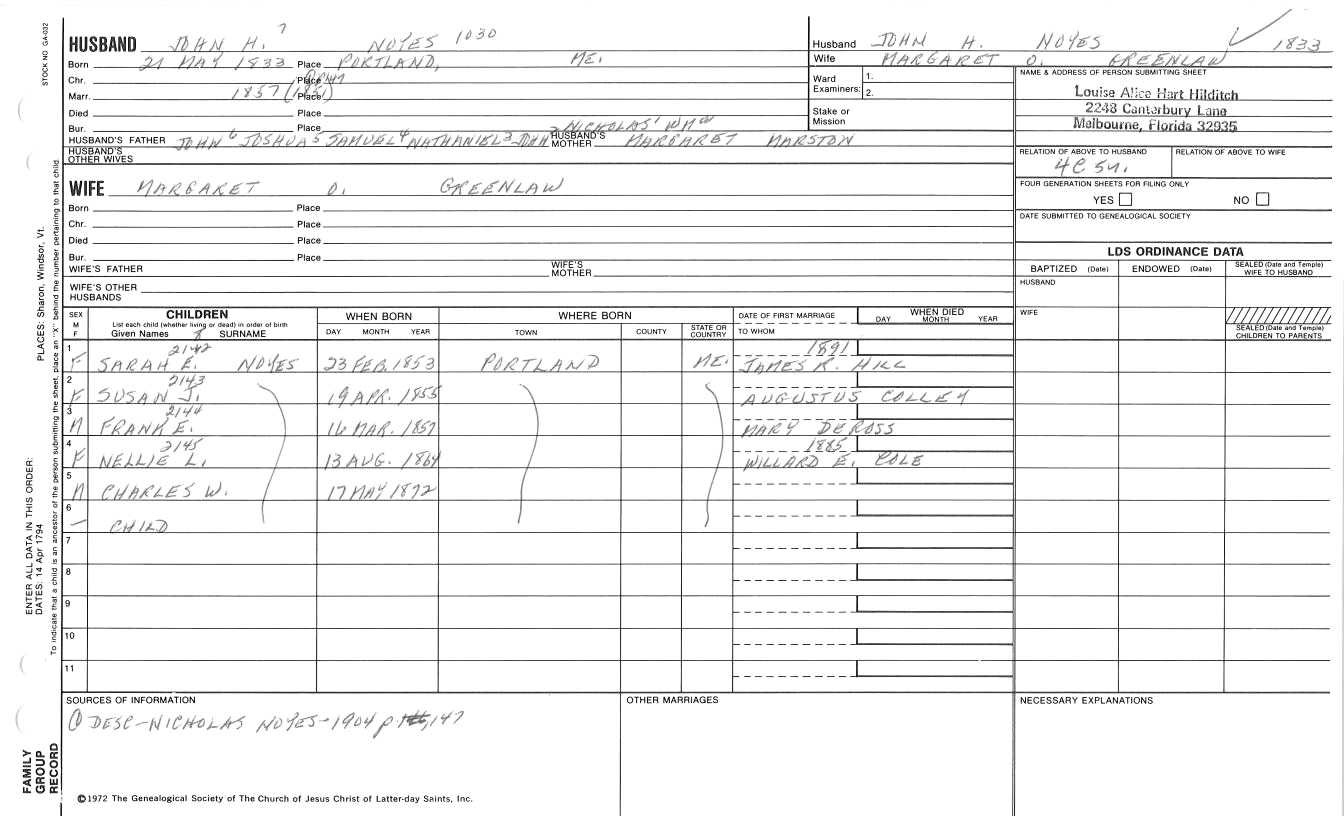 STOCK NO GA-032
HUSBAND JOHN H. 7 NOYES 1030
Born 21 MAY 1833 Place PORTLAND, ME.
Chr. Place
Marr. 1857 (1851) Place
Died Place
Bur. Place
HUSBAND'S FATHER JOHN 6 JOSHUA 5 SAMUEL 4 NATHANIEL 3 JOHN 2 NICHOLAS 1 WM
HUSBAND'S MOTHER MARGARET MARSTON
HUSBAND'S OTHER WIVES
Husband JOHN H. NOYES 1833
Wife MARGARET O. GREENLAW
Ward Examiners: 1.
2.
Stake or Mission
NAME & ADDRESS OF PERSON SUBMITTING SHEET
Louise Alice Hart Hilditch
2248 Canterbury Lane
Melbourne, Florida 32935
RELATION OF ABOVE TO HUSBAND RELATION OF ABOVE TO WIFE
4C 5
FOUR GENERATION SHEETS FOR FILING ONLY
YES NO
DATE SUBMITTED TO GENEALOGICAL SOCIETY
WIFE MARGARET O. GREENLAW
Born Place
Chr. Place
Died Place
Bur. Place
WIFE'S FATHER WIFE'S MOTHER
WIFE'S OTHER HUSBANDS
LDS ORDINANCE DATA
BAPTIZED (Date) ENDOWED (Date) SEALED (Date and Temple) WIFE TO HUSBAND
HUSBAND
WIFE
SEALED (Date and Temple) CHILDREN TO PARENTS
SEX M F CHILDREN List each child (whether living or dead) in order of birth Given Names 8 SURNAME
WHEN BORN DAY MONTH YEAR
WHERE BORN TOWN COUNTY STATE OR COUNTRY
DATE OF FIRST MARRIAGE TO WHOM
WHEN DIED DAY MONTH YEAR
2142 1891
1 F SARAH E. NOYES 23 FEB. 1853 PORTLAND ME. JAMES R. HILL
2143
2 F SUSAN J. 19 APR. 1855 AUGUSTUS COLLEY
2144
3 M FRANK E. 16 MAR. 1857 MARY DEROSS
2145 1885
4 F NELLIE L. 13 AUG. 1864 WILLARD E. COLE
5 M CHARLES W. 17 MAY 1872
6 — CHILD
7
8
9
10
11
SOURCES OF INFORMATION
① DESC-NICHOLAS NOYES-1904 p 147
OTHER MARRIAGES
NECESSARY EXPLANATIONS
©1972 The Genealogical Society of The Church of Jesus Christ of Latter-day Saints, Inc.
FAMILY GROUP RECORD
ENTER ALL DATA IN THIS ORDER:
DATES: 14 Apr 1794
PLACES: Sharon, Windsor, Vt.
To indicate that a child is an ancestor of the person submitting the sheet, place an "X" behind the number pertaining to that child